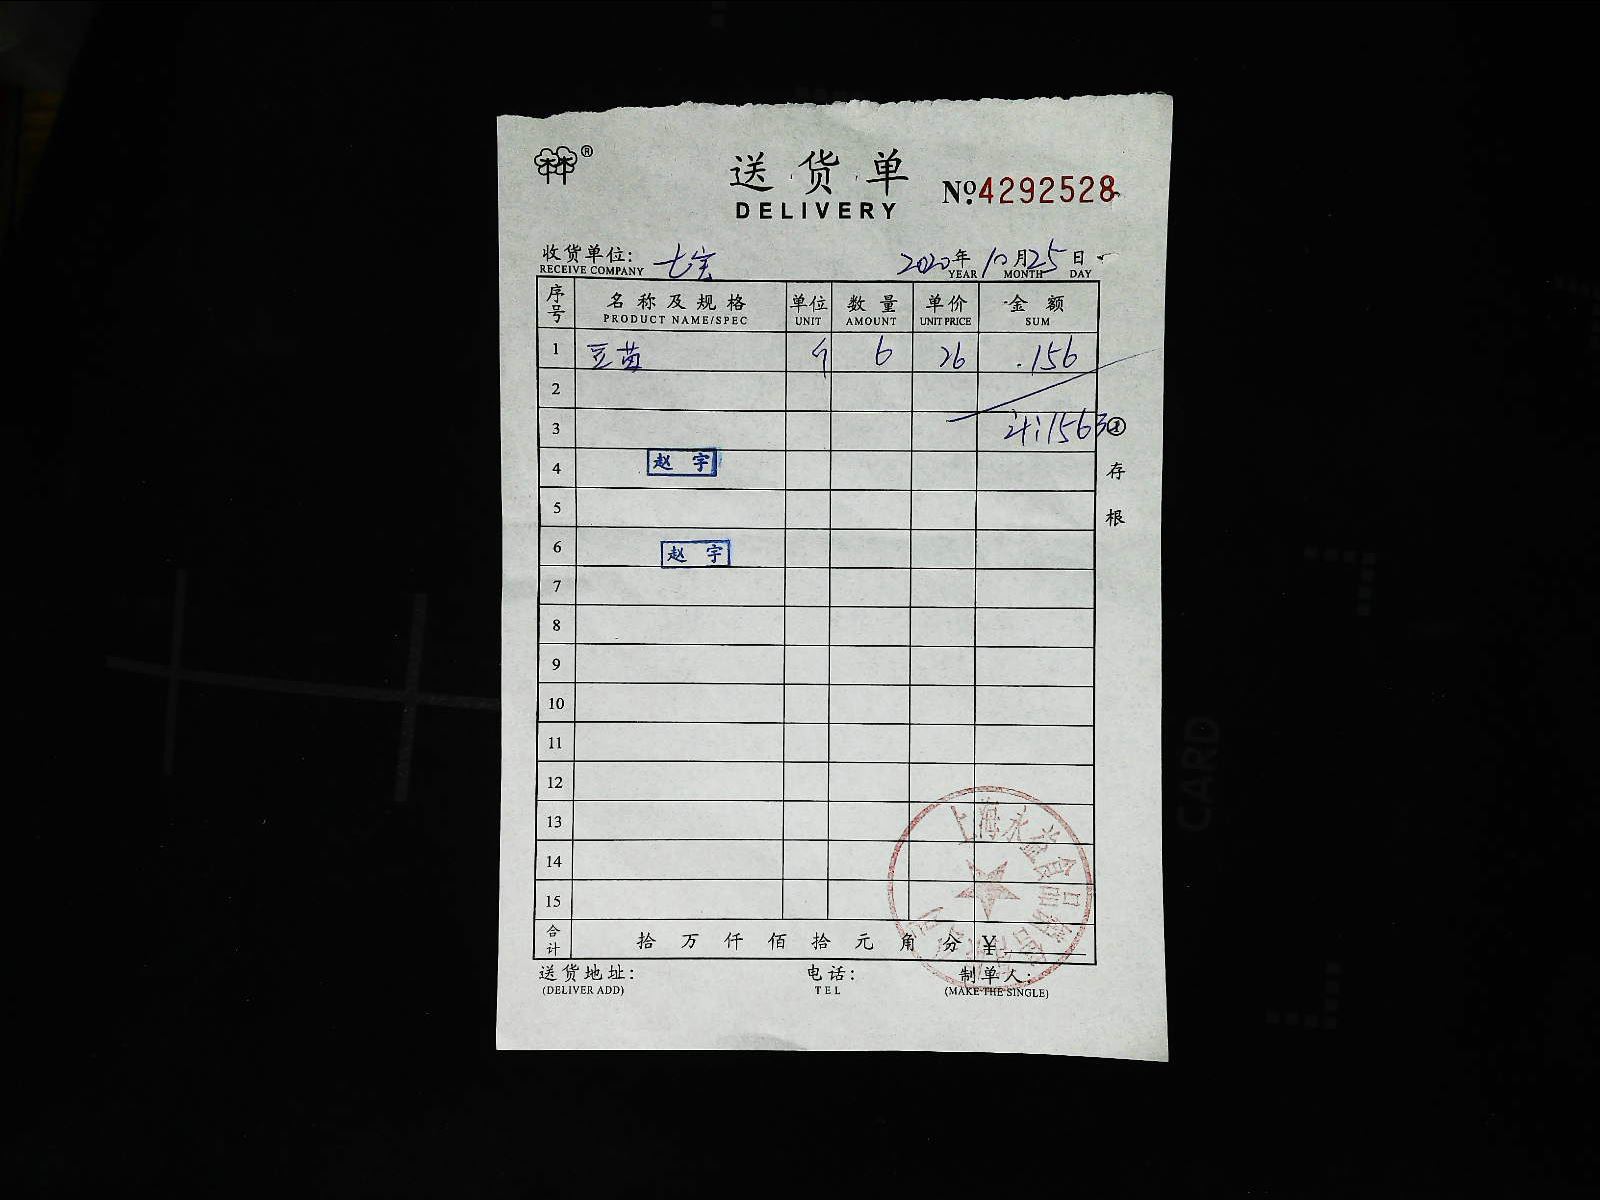 ®
送货单
DELIVERY
№:4292528
收货单位: 七宝 2020年10月25日
RECEIVE COMPANY YEAR MONTH DAY
序号 名称及规格 单位 数量 单价 金额
PRODUCT NAME/SPEC UNIT AMOUNT UNIT PRICE SUM
1 豆苗 斤 6 26 156
2
3 计:156元
① 存根
4 赵宇
5
6 赵宇
7
8
9
10
11
12
13
14
15
上海永益食品
合计 拾万仟佰拾元角分 ¥
送货地址: 电话: 制单人:
(DELIVER ADD) TEL (MAKE THE SINGLE)
CARD